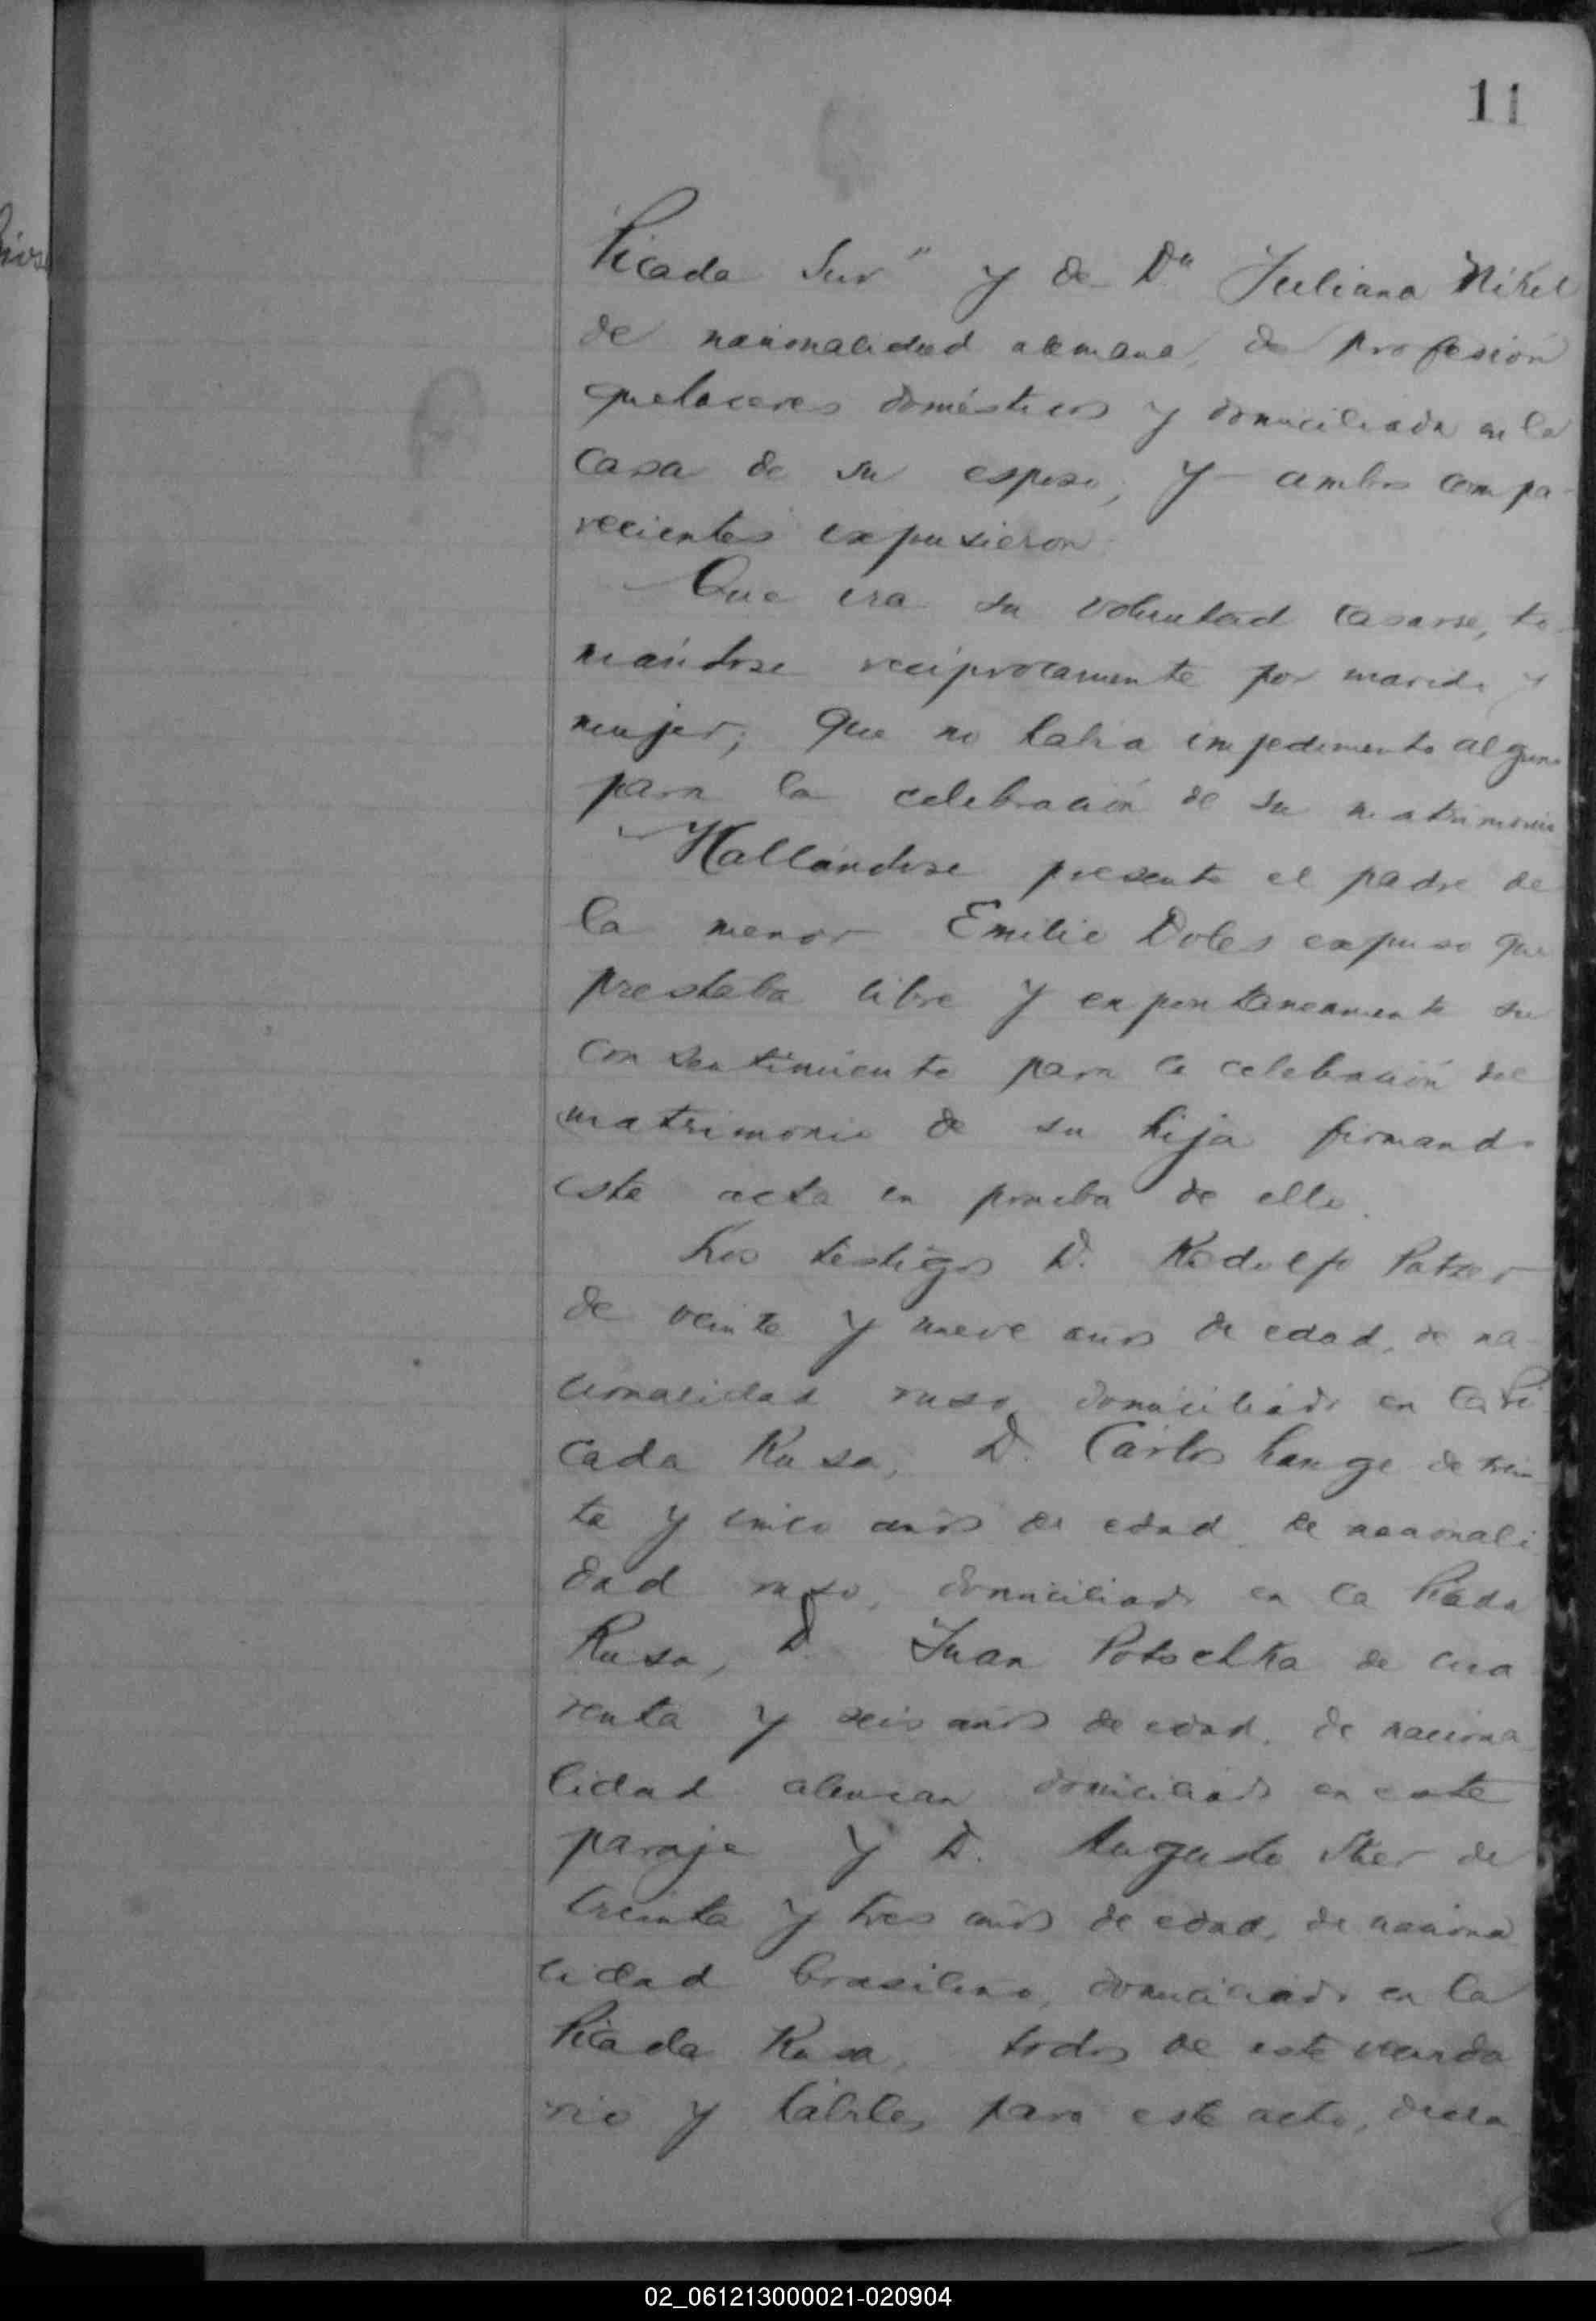 11
Picada Sur" y de Dª Juliana Nikel
de nacionalidad alemana, de profesión
quehaceres domésticos y domiciliada en la
casa de su esposo; y ambos compa-
recientes expusieron
Que era su voluntad casarse, to-
mándose reciprocamente por marido y
mujer; que no habia impedimento alguno
para la celebración de su matrimonio
Hallándose presente el padre de
la menor Emilie Doles expuso que
prestaba libre y expontaneamente su
consentimiento para la celebración del
matrimonio de su hija firmando
este acta en prueba de ello.
Los testigos D. Rodolfo Patzer
de veinte y nueve años de edad, de na-
cionalidad ruso, domiciliado en la Pi
cada Rusa, D. Carlos Lange de trein
ta y cinco años de edad, de nacionali
dad ruso, domiciliado en la Picada
Rusa, D. Juan Potschka de cua
renta y seis años de edad, de naciona
lidad aleman domiciliado en este
paraje y D. Augusto de
treinta y tres años de edad, de naciona
lidad brasilero, domiciliado en la
Picada Rusa, todos de este vecinda
rio y hábiles para este acto, decla
02_061213000021-020904